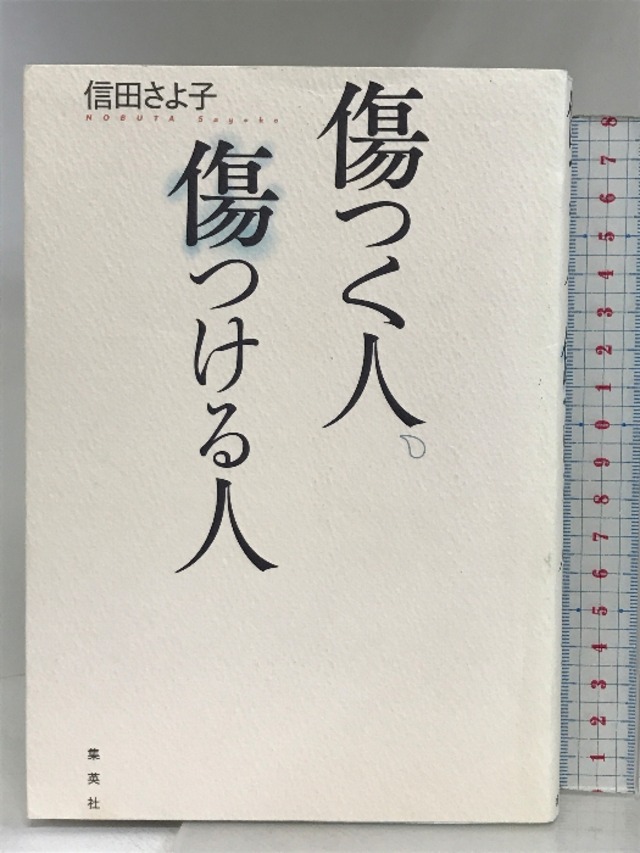 傷つく人、
傷つける人
信田さよ子
NOBUTA Sayoko
集英社
8
7
6
5
4
3
2
1
0
9
8
7
6
5
4
3
2
1